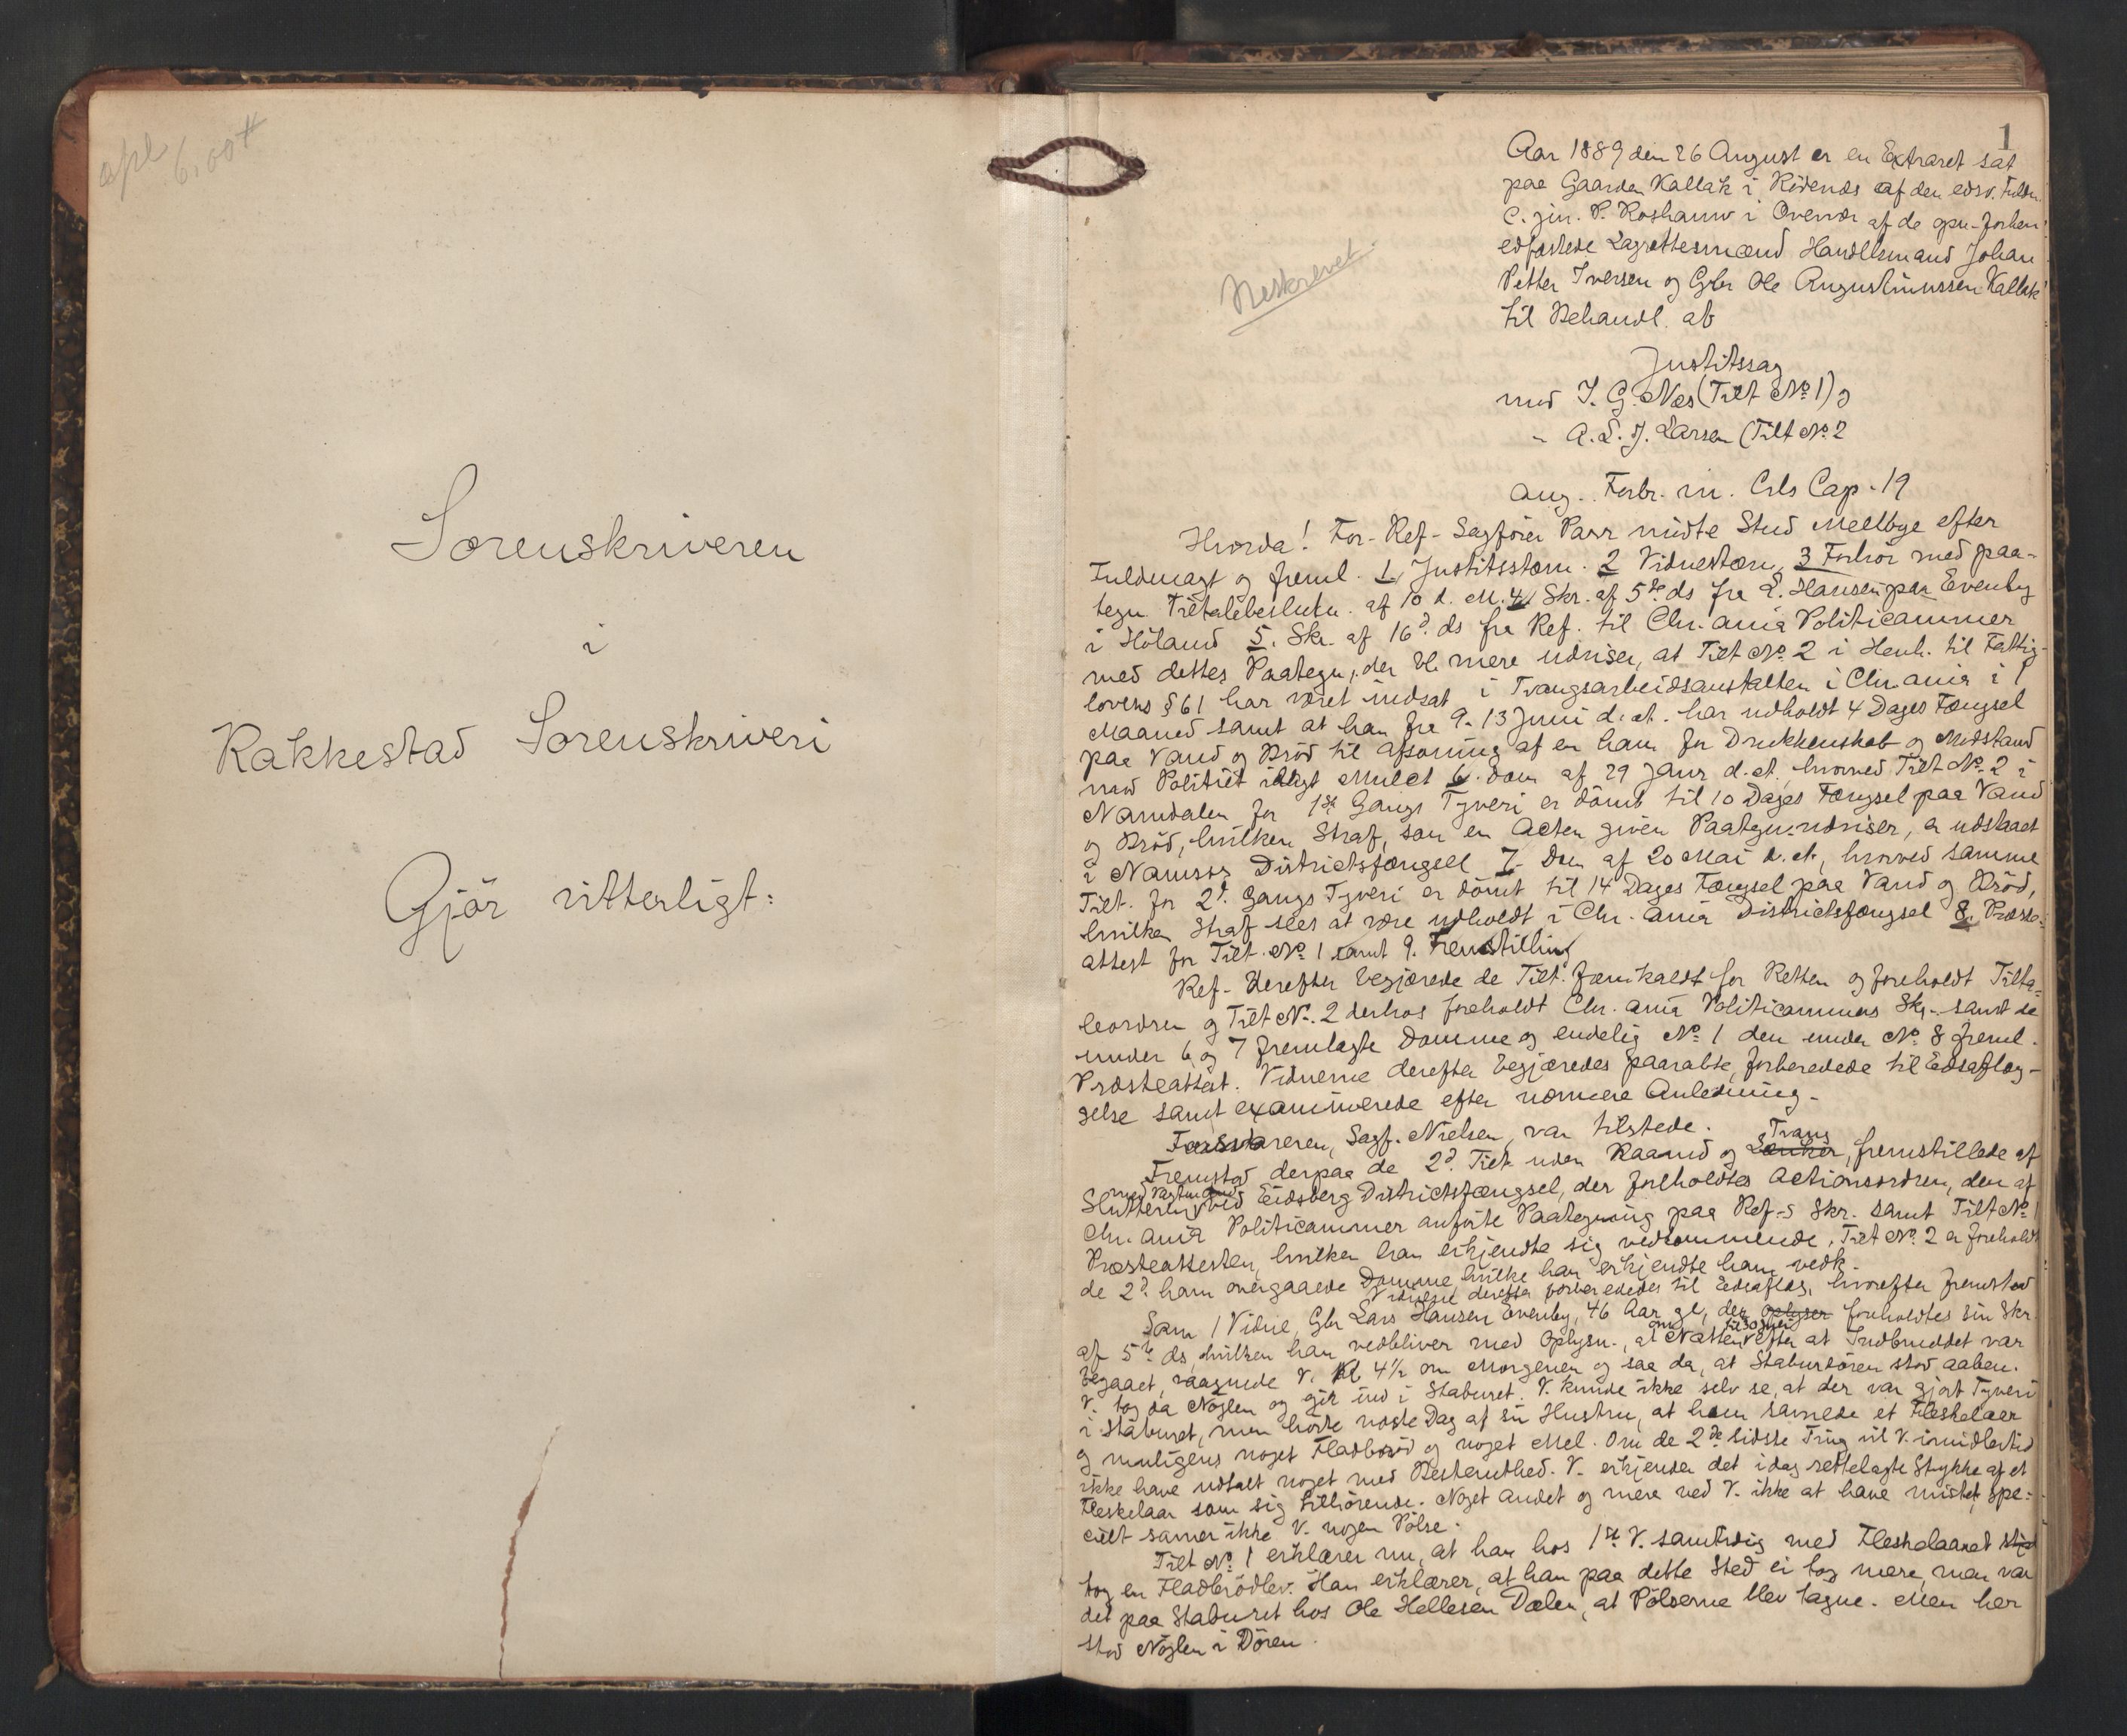 apl
6,00 #
Sorenskriveren
i
Rakkestad Sorenskriveri
Gjör vitterligt:
1
Beskrevet
Aar 1889 den 26 August er en Extraret sat
paa Gaarden Kallak i Rödenæs af den edsv. Fuldm.
C. jun. P. Roshauw i Overvær af de opn. Forhen
edfæstede Lagrettesmænd Handelsmand Johan
Petter Iversen og Gbr Ole Augustinussen Kallak
til Behandl. af
Justitssag
mod J. G. Næs (Tilt No 1) og
" A. L. J. Larsen (Tilt No 2
ang. Forbr. m. Crls Cap. 19
Hvorda! For Ref. Sagförer Parr mödte Stud Mellbye efter
Fuldmagt og freml. 1, Justitsstævn. 2 Vidnestævn, 3 Forhör med paa-
tegn. Tiltalebeslutn. af 10 d. M. 4, Skr. af 5te ds fra L. Hansen paa Evenby
i Höland 5, Skr. af 16d. ds fra Ref. til Chr.ania Politicammer
med dettes Paategn., der bl. mere udviser, at Tilt No. 2 i Henh. til Fattig-
lovens § 61 har været indsat i Tvangsarbeidsanstalten i Chr.ania i 1
Maaned samt at han fra 9-13 Juni d. A. har udholdt 4 Dages Fængsel
paa Vand og Bröd til Afsoning af en ham for Drukkenskab og Modstand
mod Politiet ilagt Mulct 6. Dom af 29 Janr d. A., hvorved Tilt No. 2 i
Namdalen for 1ste Gangs Tyveri er dömt til 10 Dages Fængsel paa Vand
og Bröd, hvilken Straf, som en Acten given Paategn. udviser, er udstaaet
i Namsos Districtsfængsel 7. Dom af 20 Mai d. A., hvorved samme
Tilt. for 2d. Gangs Tyveri er dömt til 14 Dages Fængsel paa Vand og Bröd,
hvilken Straf sees at være udholdt i Chr.ania Districtsfængsel 8, Præste-
attest for Tilt. No 1 samt 9. Fremstilling
Ref. Derefter begjærede de Tilt. fremkaldt for Retten og foreholdt Tilta-
leordren og Tilt No. 2 derhos foreholdt Chr.ania Politicammers Skr. samt de
under 6 og 7 fremlagte Domme og endelig No 1 den under No 8 freml.
Præsteattest. Vidnerne derefter begjæredes paaraabte, forberedede til Edsaflæg-
gelse samt examinerede efter nærmere Anledning.
Forsvareren, Sagf. Nielsen, var tilstede.
Fremstod derpaa de 2d. Tilt. uden Baand og Tvang, fremstillede af
Slutteren med Vagtmand ved Eidsberg Districtsfængsel, der foreholdtes Actionsordren, den af
Chr.ania Politicammer anförte Paategning paa Ref.s Skr. samt Tilt No 1
Præsteattesten, hvilken han erkjendte sig vedkommende. Tilt No. 2 er foreholdt
de 2d. ham overgaaede Domme, hvilke han erkjendte ham vedk.
Vidnerne derefter forberededes til Edsaflæg. hvorefter fremstod
Som 1 Vidne, Gbr Lars Hansen Evenby, 46 Aar gl., der foreholdtes sin Skr
af 5te ds, hvilken han vedbliver med Oplysn., at om Natten efter at Indbruddet var
begaaet, vaagnede V. Kl 4½ om Morgenen og saa da, at Stabursdören stod aaben.
V. tog da Nöglen og gik ind i Staburet. V. kunde ikke selv se, at der var gjort Tyveri
i Staburet, men hörte næste Dag af sin Hustru, at hun savnede et Fleskelaar
og muligens noget Fladbröd og noget Mel. Om de 2de sidste Ting vil V. imidlertid
ikke have udtalt noget med Bestemthed. V. erkjender det idag rettelagte Stykke af et
Fleskelaar som sig tilhörende. Noget andet og mere ved V. ikke at have mistet, spe-
cielt savner ikke V. nogen Pölse.
Tilt No. 1 erklærer nu, at han hos 1ste V. samtidig med Fleskelaaret
tog en Fladbrödlev. Han erklærer, at han paa dette Sted ei tog mere, men var
det paa Staburet hos Ole Hellesen Dælen, at Pölserne blev tagne. Men her
stod Nöglen i Dören.